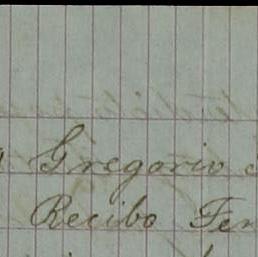 Gregorio
Recibo Fer